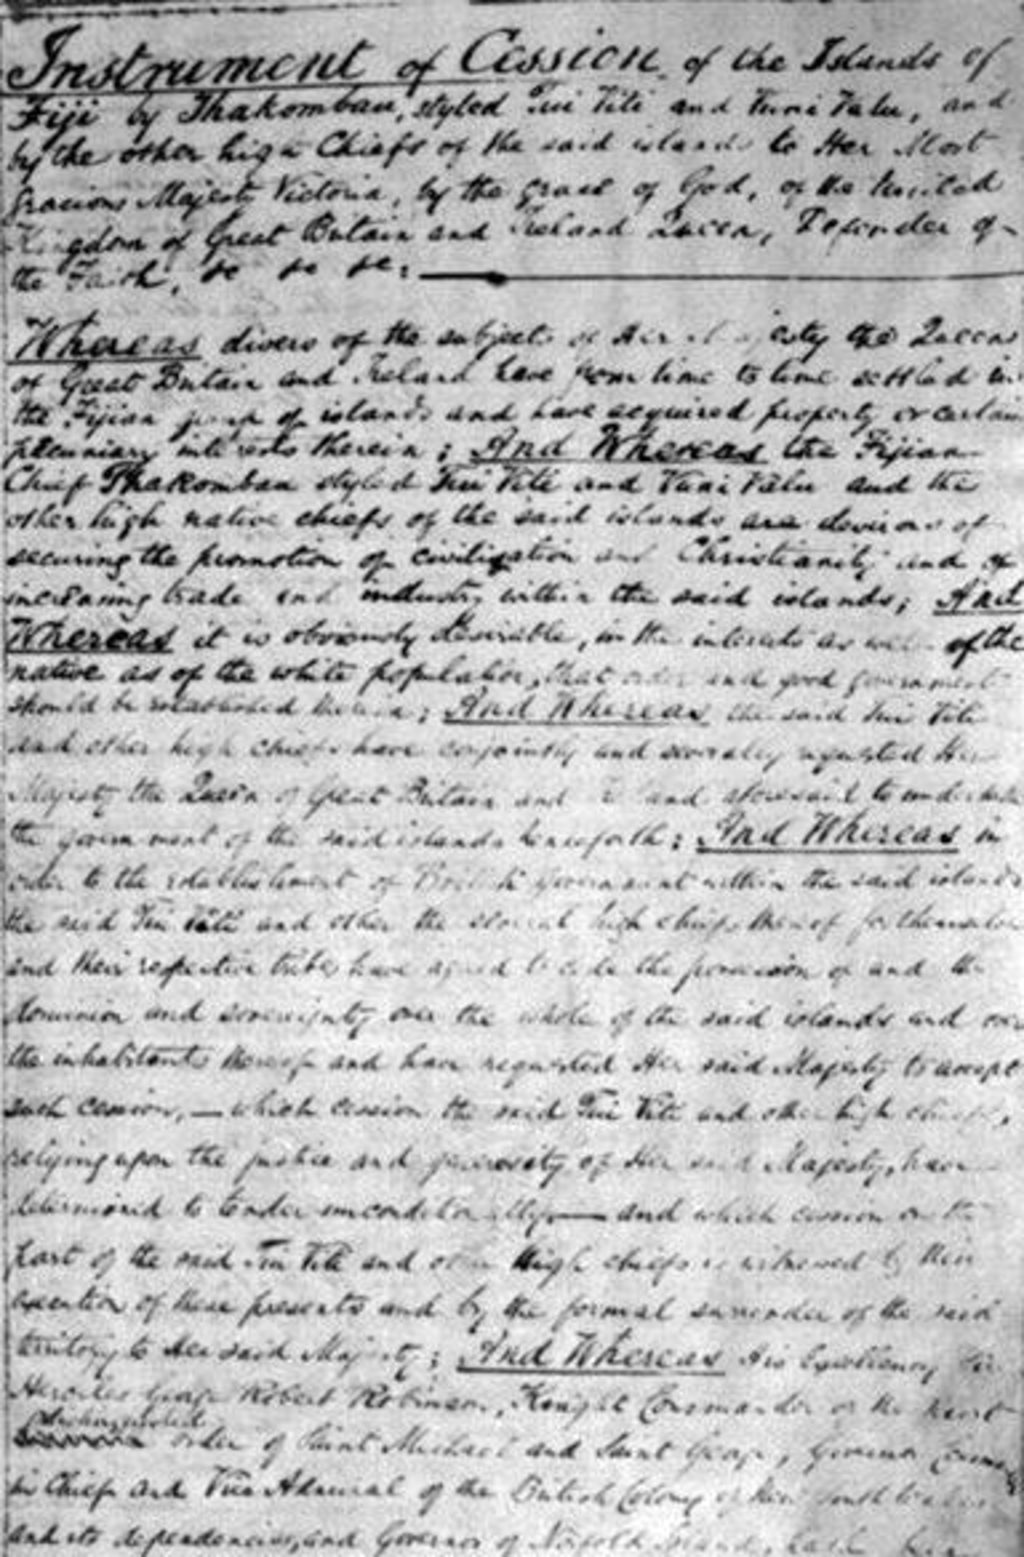 Instrument of Cession of the Islands of
Fiji by Thakombau, styled Tui Viti and Vuni Valu, and
by the other high Chiefs of the said islands to Her Most
Gracious Majesty Victoria, by the grace of God, of the United
Kingdom of Great Britain and Ireland Queen, Defender of
the Faith, &c &c &c:
Whereas divers of the subjects of Her Majesty the Queen
of Great Britain and Ireland have from time to time settled in
the Fijian group of islands and have acquired property or certain
pecuniary interests therein; And Whereas the Fijian
Chief Thakombau styled Tui Viti and Vuni Valu and the
other high native chiefs of the said islands are desirous of
securing the promotion of civilization and Christianity and of
increasing trade and industry within the said islands; And
Whereas it is obviously desirable, in the interests as well of the
native as of the white population, that order and good government
should be established therein; And Whereas the said Tui Viti
and other high chiefs have conjointly and severally requested Her
Majesty the Queen of Great Britain and Ireland aforesaid to undertake
the government of the said islands henceforth; And Whereas in
order to the establishment of British government within the said islands
the said Tui Viti and other the several high chiefs thereof for themselves
and their respective tribes have agreed to cede the possession of and the
dominion and sovereignty over the whole of the said islands and over
the inhabitants thereof and have requested Her said Majesty to accept
such cession, — which cession the said Tui Viti and other high chiefs,
relying upon the justice and generosity of Her said Majesty, have
determined to tender unconditionally — and which cession on the
part of the said Tui Viti and other High chiefs is witnessed by their
execution of these presents and by the formal surrender of the said
territory to Her said Majesty; And Whereas His Excellency Sir
Hercules George Robert Robinson, Knight Commander of the most
distinguished order of Saint Michael and Saint George, Governor Comman
in Chief and Vice Admiral of the British Colony of New South Wales
and its dependencies, and Governor of Norfolk Island, hath been